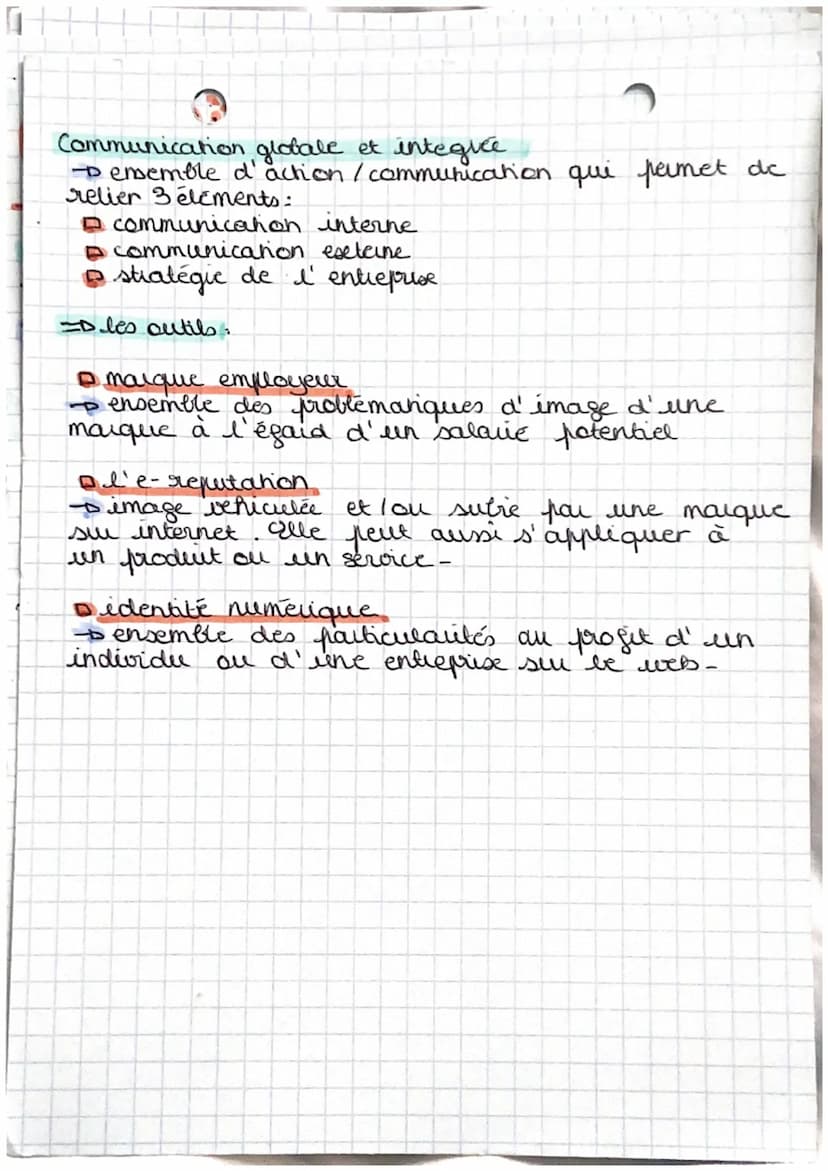 Communication globale et integrée
→ ensemble d'action / communication qui permet de
relier 3 éléments :
communication interne
communication externe
stratégie de l'entreprise
⇒ les outils :
marque employeur
→ ensemble des problématiques d'image d'une
marque à l'égard d'un salarié potentiel
l'e-reputation
→ image véhiculée et/ou subie par une marque
sur internet. Elle peut aussi s'appliquer à
un produit ou un service -
identité numérique
→ ensemble des particularités au profit d'un
individu ou d'une entreprise sur le web -